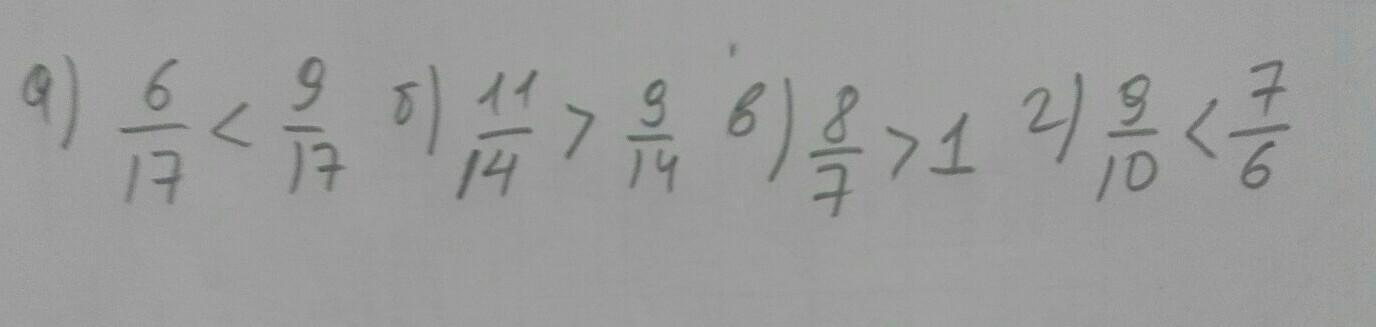 а) 6/17 < 9/17 б) 11/14 > 9/14 в) 8/7 > 1 г) 9/10 < 7/6